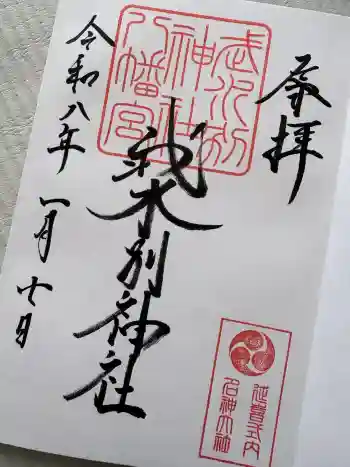 奉拝
武水別
神社
八幡宮
武水別神社
令和八年 一月七日
延喜式内
名神大社